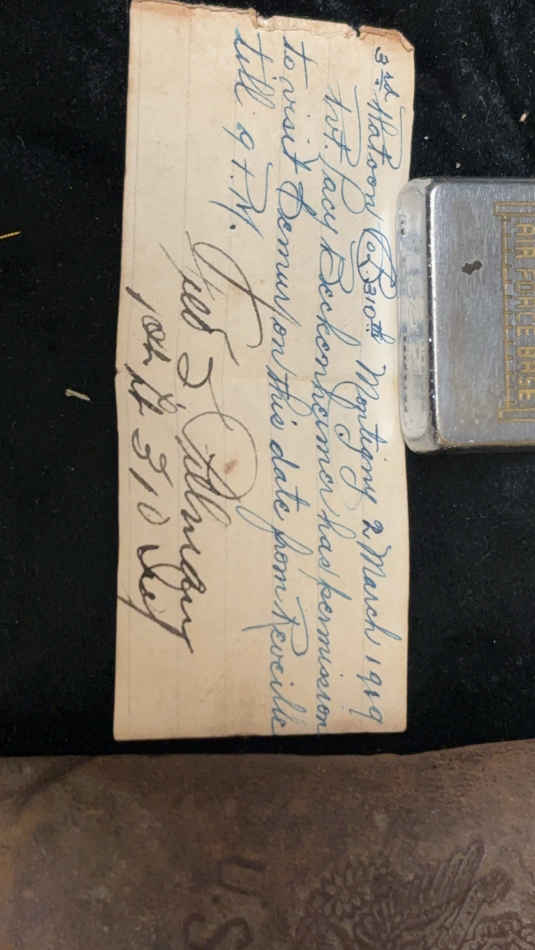 3rd Platoon Co L 310th Montigny 2 March 1919
Pvt. Jacy Bockonheimer has permission
to visit Semur on this date from Reveille
till 9 P.M.
Fred
1st Lt 310 Inf
AIR FORCE BASE
U S